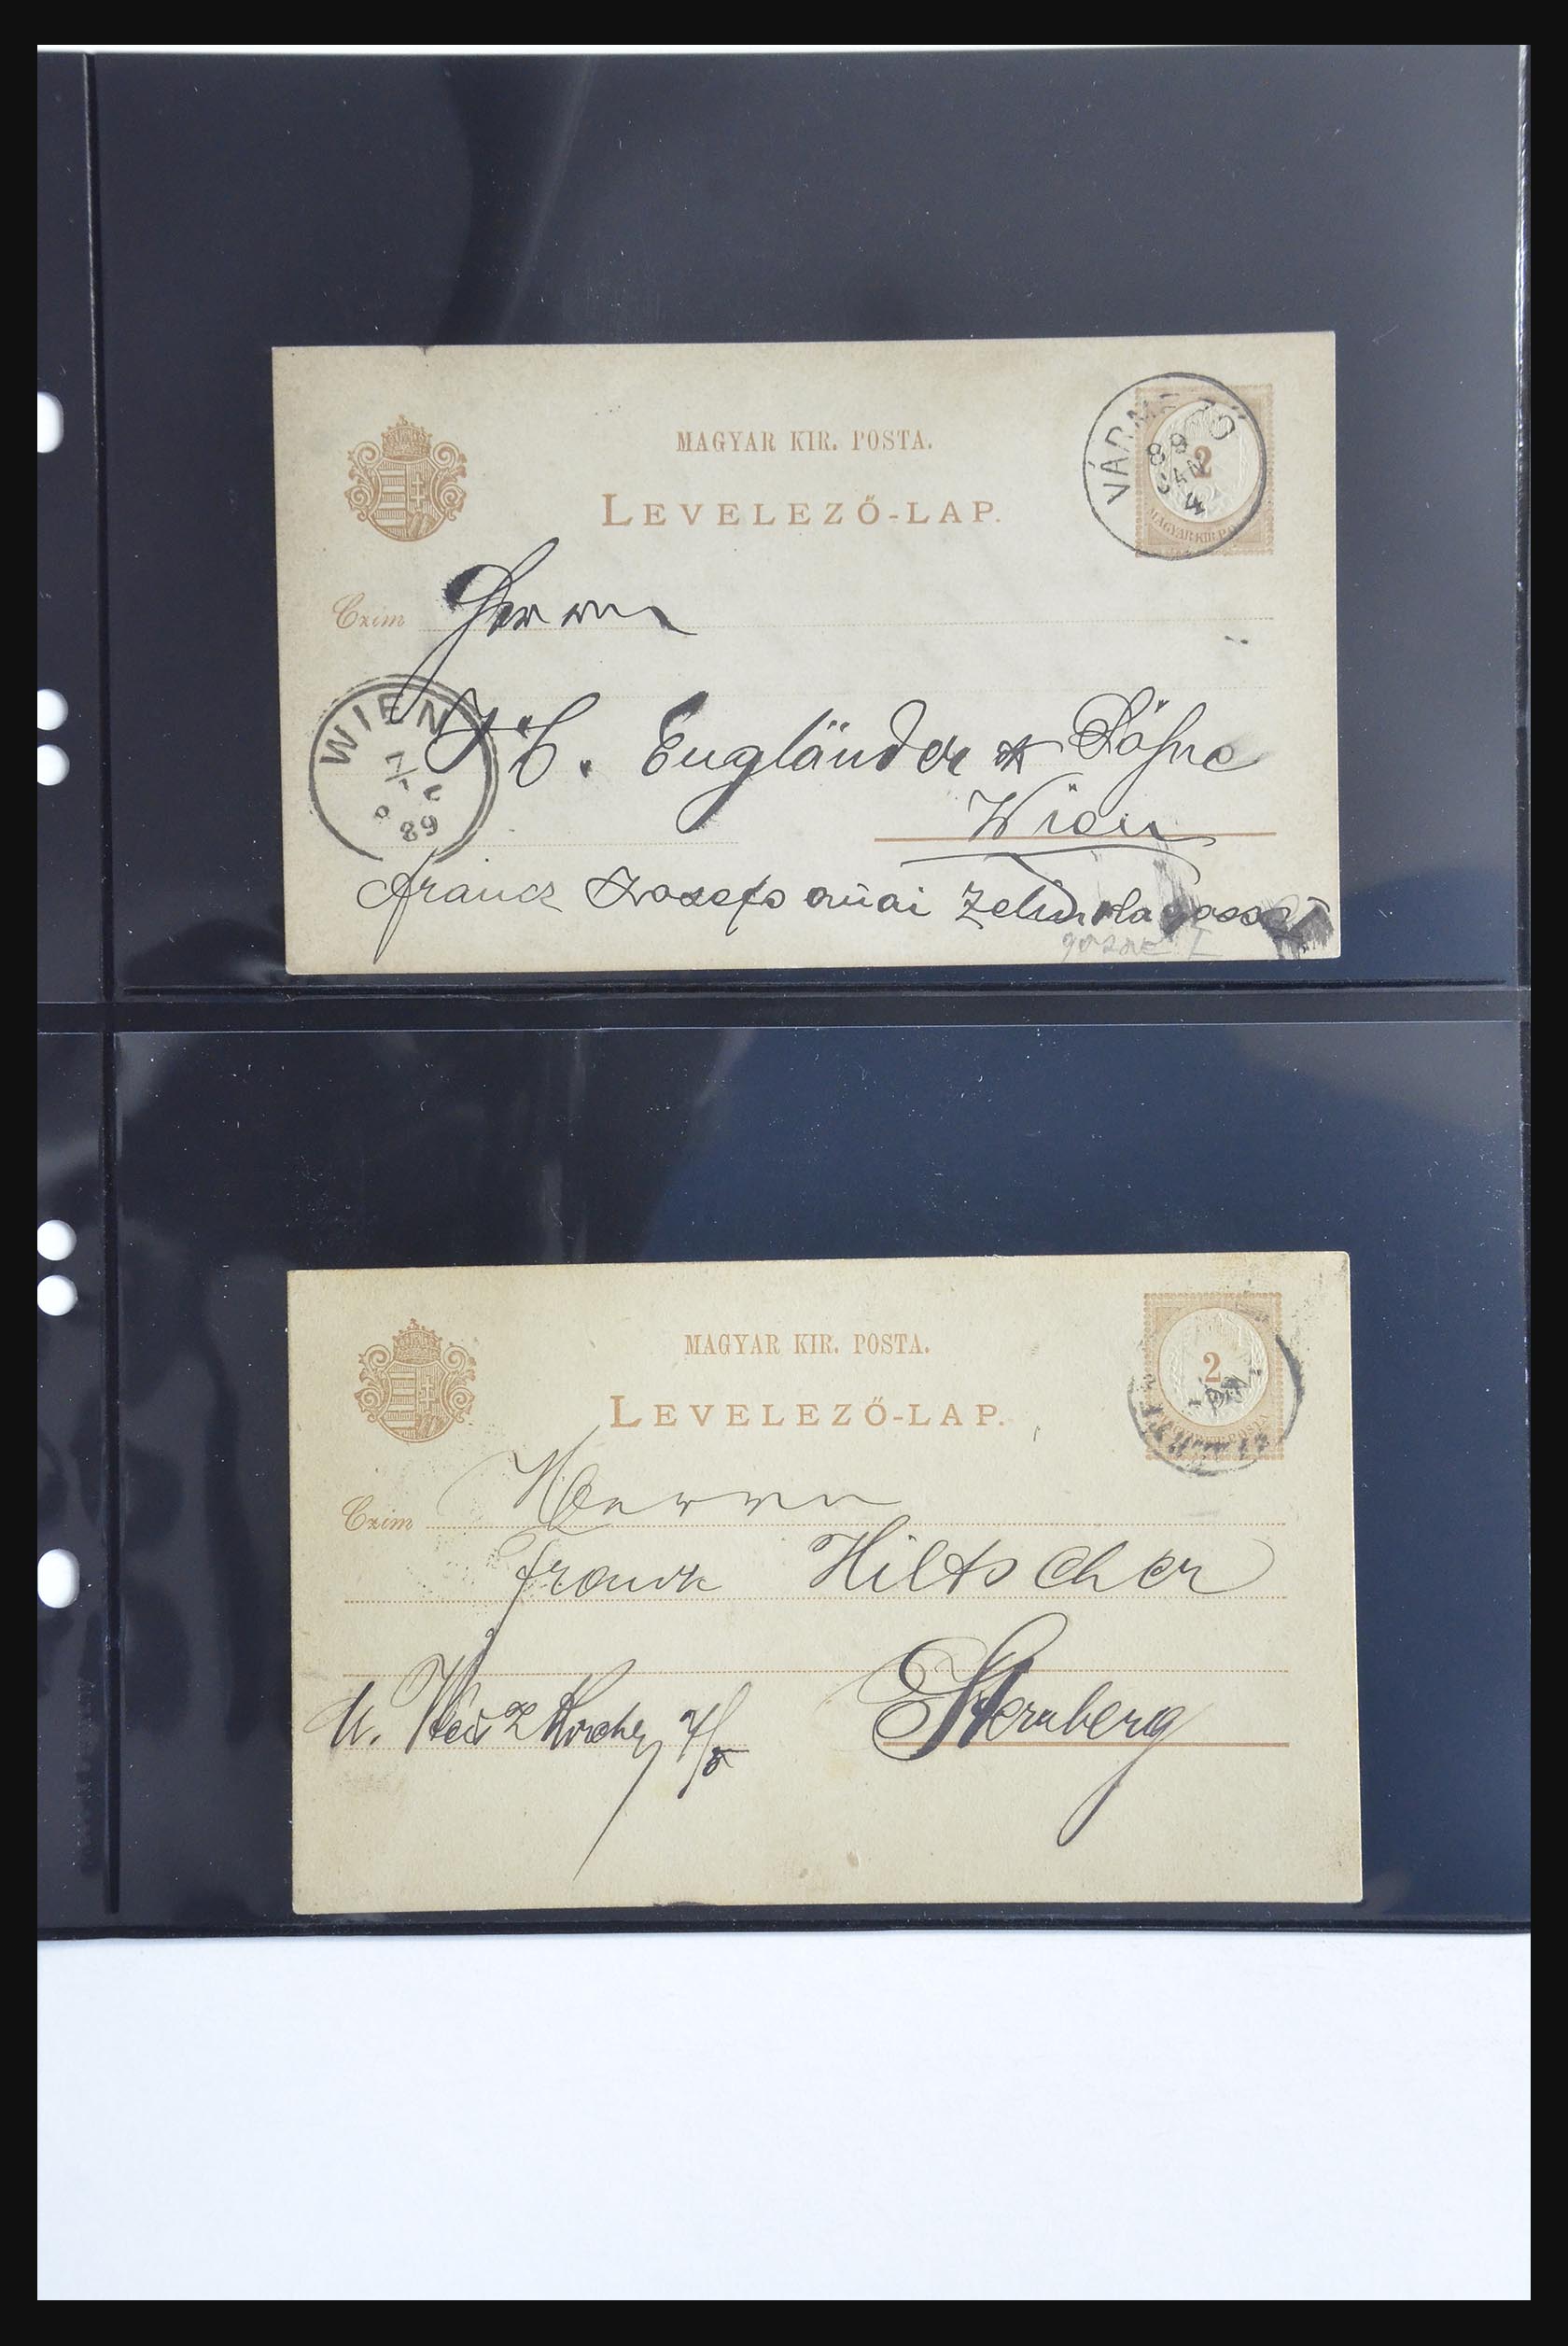 MAGYAR KIR. POSTA.
LEVELEZŐ-LAP.
VÁRMEZŐ
89
JAN
4
2
MAGYAR KIR. PO
Czim Herrn
WIEN
7/1
89
J. C. Engländer & Söhne
Wien
Francz Josefs quai
MAGYAR KIR. POSTA.
LEVELEZŐ-LAP.
2
Czim Herrn
Frank Hiltscher
Sternberg